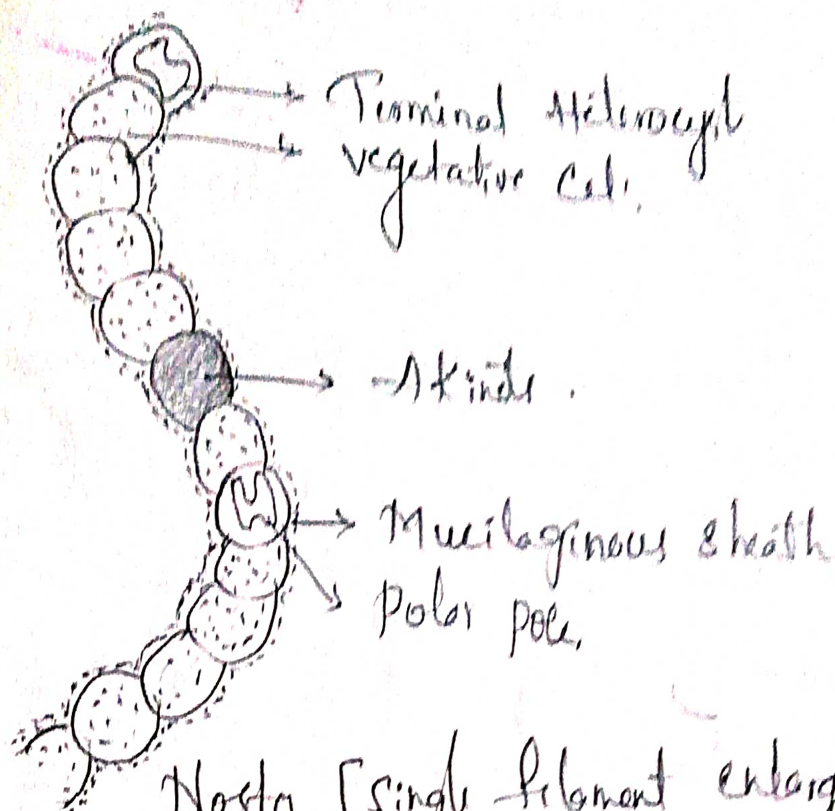 Terminal Heterocyst
vegetative Cell.
Akinete.
Mucilaginous sheath
Polar pole.
Nosto [Single filament enlarg